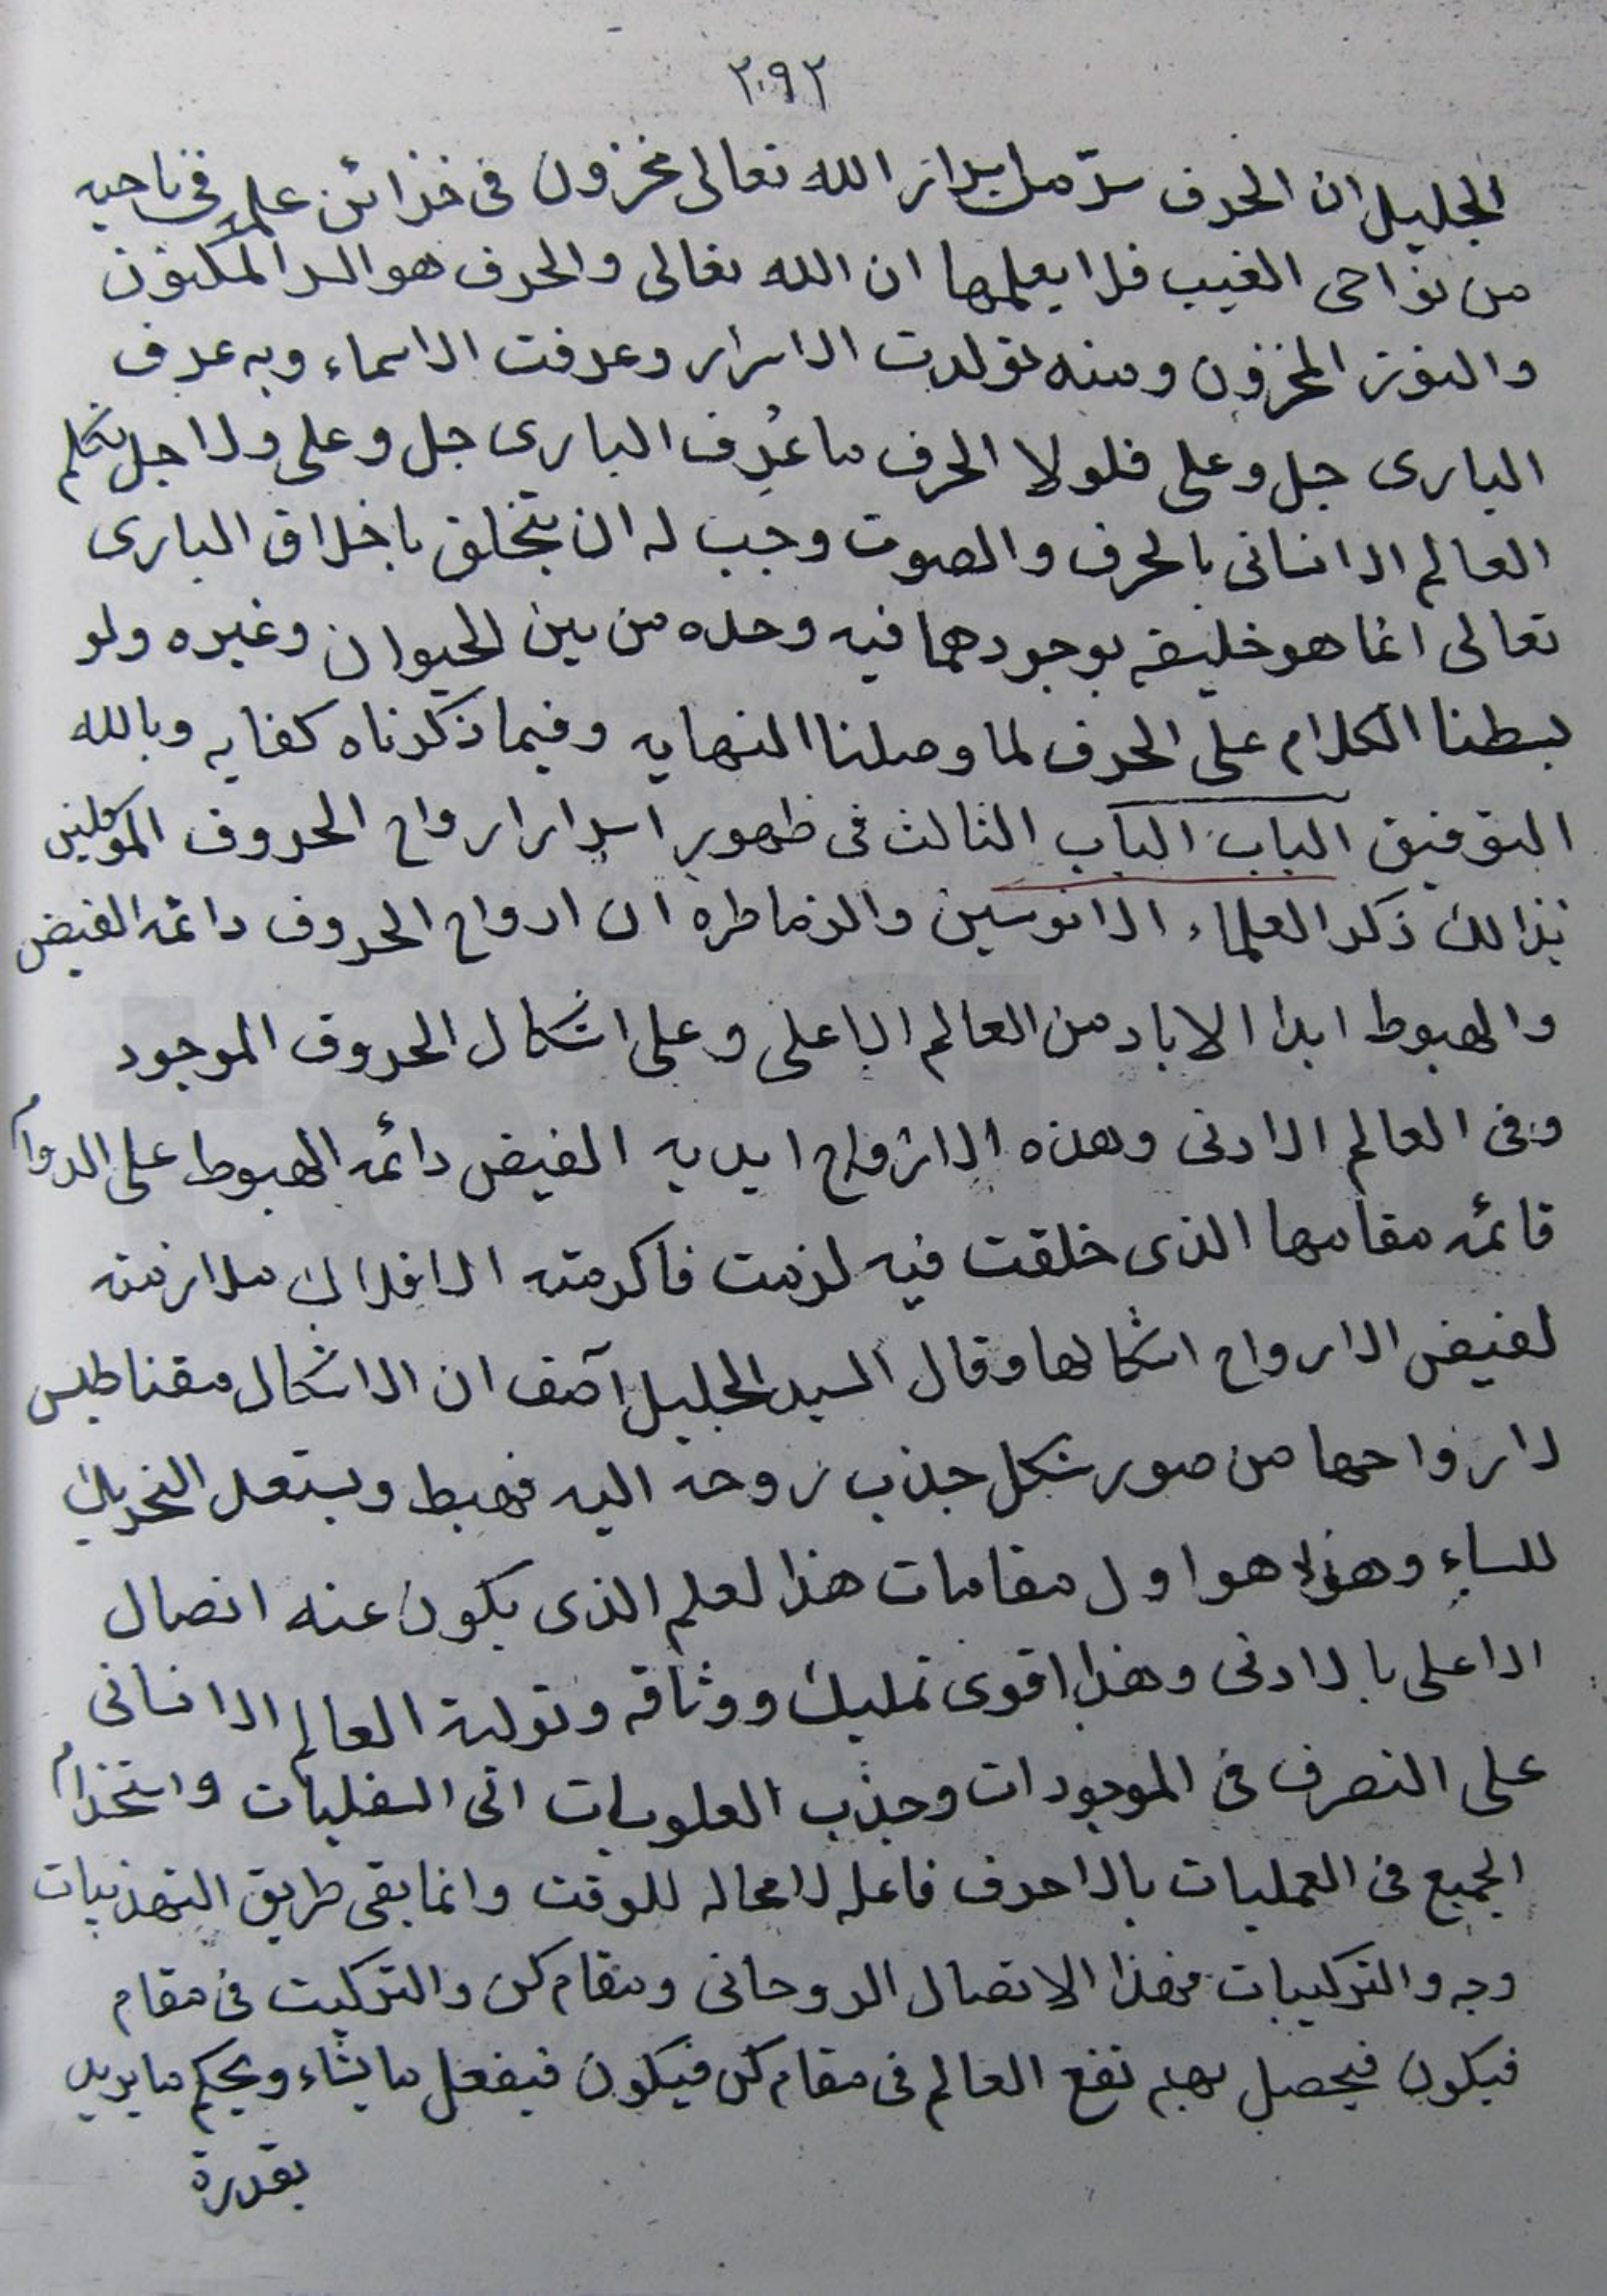 ٢٠٩٢
الجليل ان الحرف سرّ من اسرار الله تعالى مخزون فى خزائن علمه فى ناحيه
من نواحى الغيب فلا يعلمها ان الله تعالى والحرف هو السر المكنون
والنور المخزون ومنه تولدت الاسرار وعرفت الاسماء وبه عرف
البارى جل وعلى فلولا الحرف ما عُرِف البارى جل وعلى ولاجل تكلم
العالم الانسانى بالحرف والصوت وجب له ان يتخلق باخلاق البارى
تعالى انما هو خليفه بوجودهما فيه وحده من بين الحيوان وغيره ولو
بسطنا الكلام على الحرف لما وصلنا النهايه وفيما ذكرناه كفايه وبالله
التوفيق الباب الباب الثالث فى ظهور اسرار ارواح الحروف الموكلين
بذالك ذكر العلماء الانوسين والزماطره ان ارواح الحروف دائمه الفيض
والهبوط ابدا الاباد من العالم الاعلى وعلى اشكال الحروف الموجود
وفى العالم الادنى وهذه الارواح ابديه الفيض دائمه الهبوط على الدوام
قائمه مقامها الذى خلقت فيه لزمت فاكرمته الافلاك ملازمته
لفيض الارواح اشكالها وقال السيد الجليل آصف ان الاشكال مقناطيس
لارواحها من صور شكل جذب روحه اليه فهبط ويستعد التحريك
للساء وهذا هو اول مقامات هذا لعلم الذى يكون عنه اتصال
الاعلى بالادنى وهذا اقوى تمليك ووثاقه وتولية العالم الانسانى
على التصرف فى الموجودات وجذب العلويات الى السفليات واستخدام
الجميع فى العمليات بالاحرف فاعله لامحاله للوقت وانما بقى طريق التهذيبات
وجه والتركيبات فهذا الاتصال الروحانى ومقام كن والتركيب فى مقام
فيكون فيحصل بهم نفع العالم فى مقام كن فيكون فيفعل ما يشاء ويحكم ما يريد
بقدرة